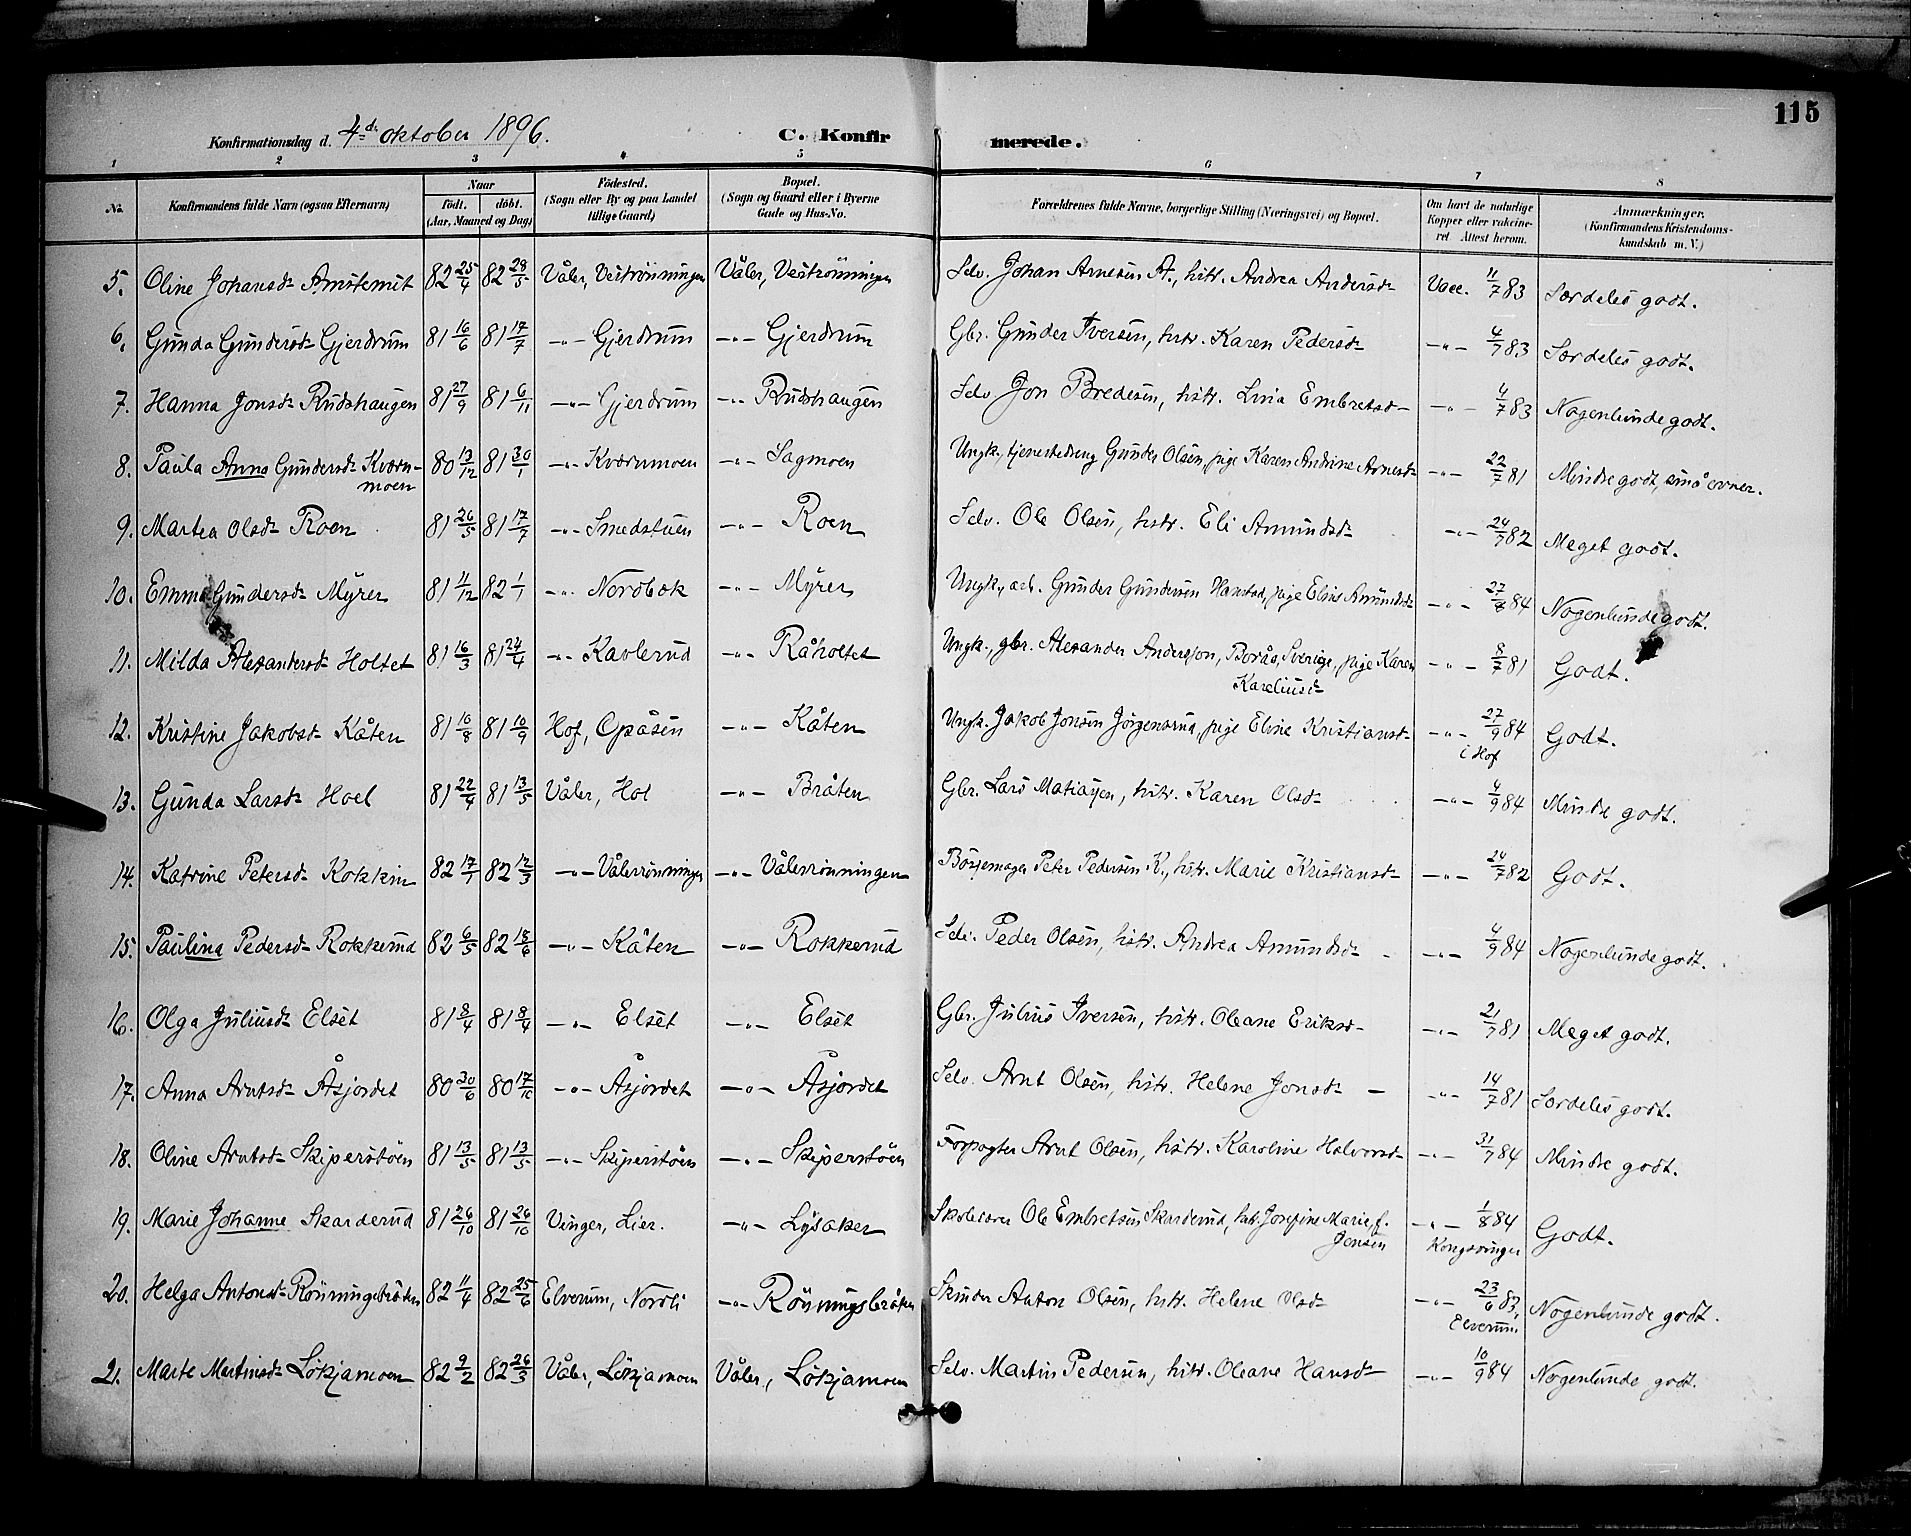 115
Konfirmationsdag d. 4de oktober 1896.
C. Konfirmerede.
1 2 3 4 5 6 7 8
No. Konfirmandens fulde Navn (ogsaa Efternavn) Naar født. døbt. (Aar, Maaned og Dag) Fødested. (Sogn eller By og paa Landet tillige Gaard) Bopæl. (Sogn og Gaard eller i Byerne Gade og Hus-No. Forældrenes fulde Navne, borgerlige Stilling (Næringsvei) og Bopæl. Om havt de naturlige Kopper eller vakcineret Attest herom. Anmærkninger. (Konfirmandens Kristendomskundskab m. V.)
5. Oline Johansdr Arnstemit 82 25/4 82 28/5 Våler, Veströnningen Våler, Veströnningen Selv. Johan Arnesen A., hstr. Andrea Andersdr Vacc. 11/7 83 Særdeles godt.
6. Gunda Gundersdr Gjerdrum 81 16/6 81 17/7 -"- Gjerdrum -"- Gjerdrum Gbr. Gunder Iversen, hstr. Karen Pedersdr -"- 4/7 83 Særdeles godt.
7. Hanna Jonsdr Rudshaugen 81 27/9 81 6/11 -"- Gjerdrum -"- Rudshaugen Selv. Jon Bredesen, hstr. Lina Embretsdr -"- 4/7 83 Nogenlunde godt.
8. Paula Anna Gundersdr Kværnmoen 80 13/12 81 30/1 -"- Kværnmoen -"- Sagmoen Ungk., tjenestedreng Gunder Olsen, pige Karen Andrine Arnesdr -"- 22/7 81 Mindre godt, små evner.
9. Martea Olsdr Roen 81 26/5 81 17/7 -"- Smedstuen -"- Roen Selv. Ole Olsen, hstr. Eli Amundsdr -"- 24/7 82 Meget godt.
10. Emma Gundersdr Myrer 81 11/12 82 1/1 -"- Nordbok -"- Myrer Ungk., arb. Gunder Gundersen Hanstad, pige Elins Amundsdr -"- 27/8 84 Nogenlunde godt.
11. Milda Alexandersdr Holtet 81 16/3 81 24/4 -"- Kavlerud -"- Råholtet Ungk., gbr. Alexander Andersson, Borås, Sverige, pige Karen Kareliusdr -"- 8/7 81 Godt.
12. Kristine Jakobsdr Kåten 81 10/8 81 10/9 Hof, Opåsen -"- Kåten Ungk. Jakob Jonsen Jörgensrud, pige Eline Kristiansdr -"- 27/9 84 i Hof Godt.
13. Gunda Larsdr Hoel 81 22/4 81 13/5 Våler, Hol -"- Bråten Gbr. Lars Matiasen, hstr. Karen Olsdr -"- 4/9 84 Mindre godt.
14. Katrine Petersdr Kokkin 82 17/1 82 12/3 -"- Vålerrönningen -"- Vålerrönningen Börsemager Peter Pedersen K., hstr. Marie Kristiansdr -"- 24/7 82 Godt.
15. Paulina Pedersdr Rokkerud 82 6/5 82 18/6 -"- Kåten -"- Rokkerud Selv. Peder Olsen, hstr. Andrea Amundsdr -"- 4/9 84 Nogenlunde godt.
16. Olga Juliusdr Elset 81 8/4 81 8/4 -"- Elset -"- Elset Gbr. Julius Iversen, hstr. Oleane Eriksdr -"- 21/7 81 Meget godt.
17. Anna Arntsdr Åsjordet 80 30/6 80 17/10 -"- Åsjordet -"- Åsjordet Selv. Arnt Olsen, hstr. Helene Jonsdr -"- 14/7 81 Særdeles godt.
18. Oline Arntsdr Skiperstöen 81 13/5 81 13/5 -"- Skiperstöen -"- Skiperstöen Forpagter Arnt Olsen, hstr. Karoline Halvorsdr -"- 31/7 84 Mindre godt.
19. Marie Johanne Skarderud 81 26/10 81 26/10 Vinger, Lier. -"- Lysaker Skolelærer Ole Embretsen Skarderud, hstr. Josefine Marie, f. Jensen -"- 1/8 84 Kongsvinger Godt.
20. Helga Antonsdr Rönningsbråten 82 11/4 82 25/6 Elverum, Nordli -"- Rönningsbråten Skinder Anton Olsen, hstr. Helene Olsdr -"- 23/6 83, Elverum Nogenlunde godt.
21. Marte Martinsdr Lökjamoen 82 9/2 82 26/3 Våler, Lökjamoen Våler, Lökjamoen Selv. Martin Pedersen, hstr. Oleane Hansdr -"- 10/9 84 Nogenlunde godt.